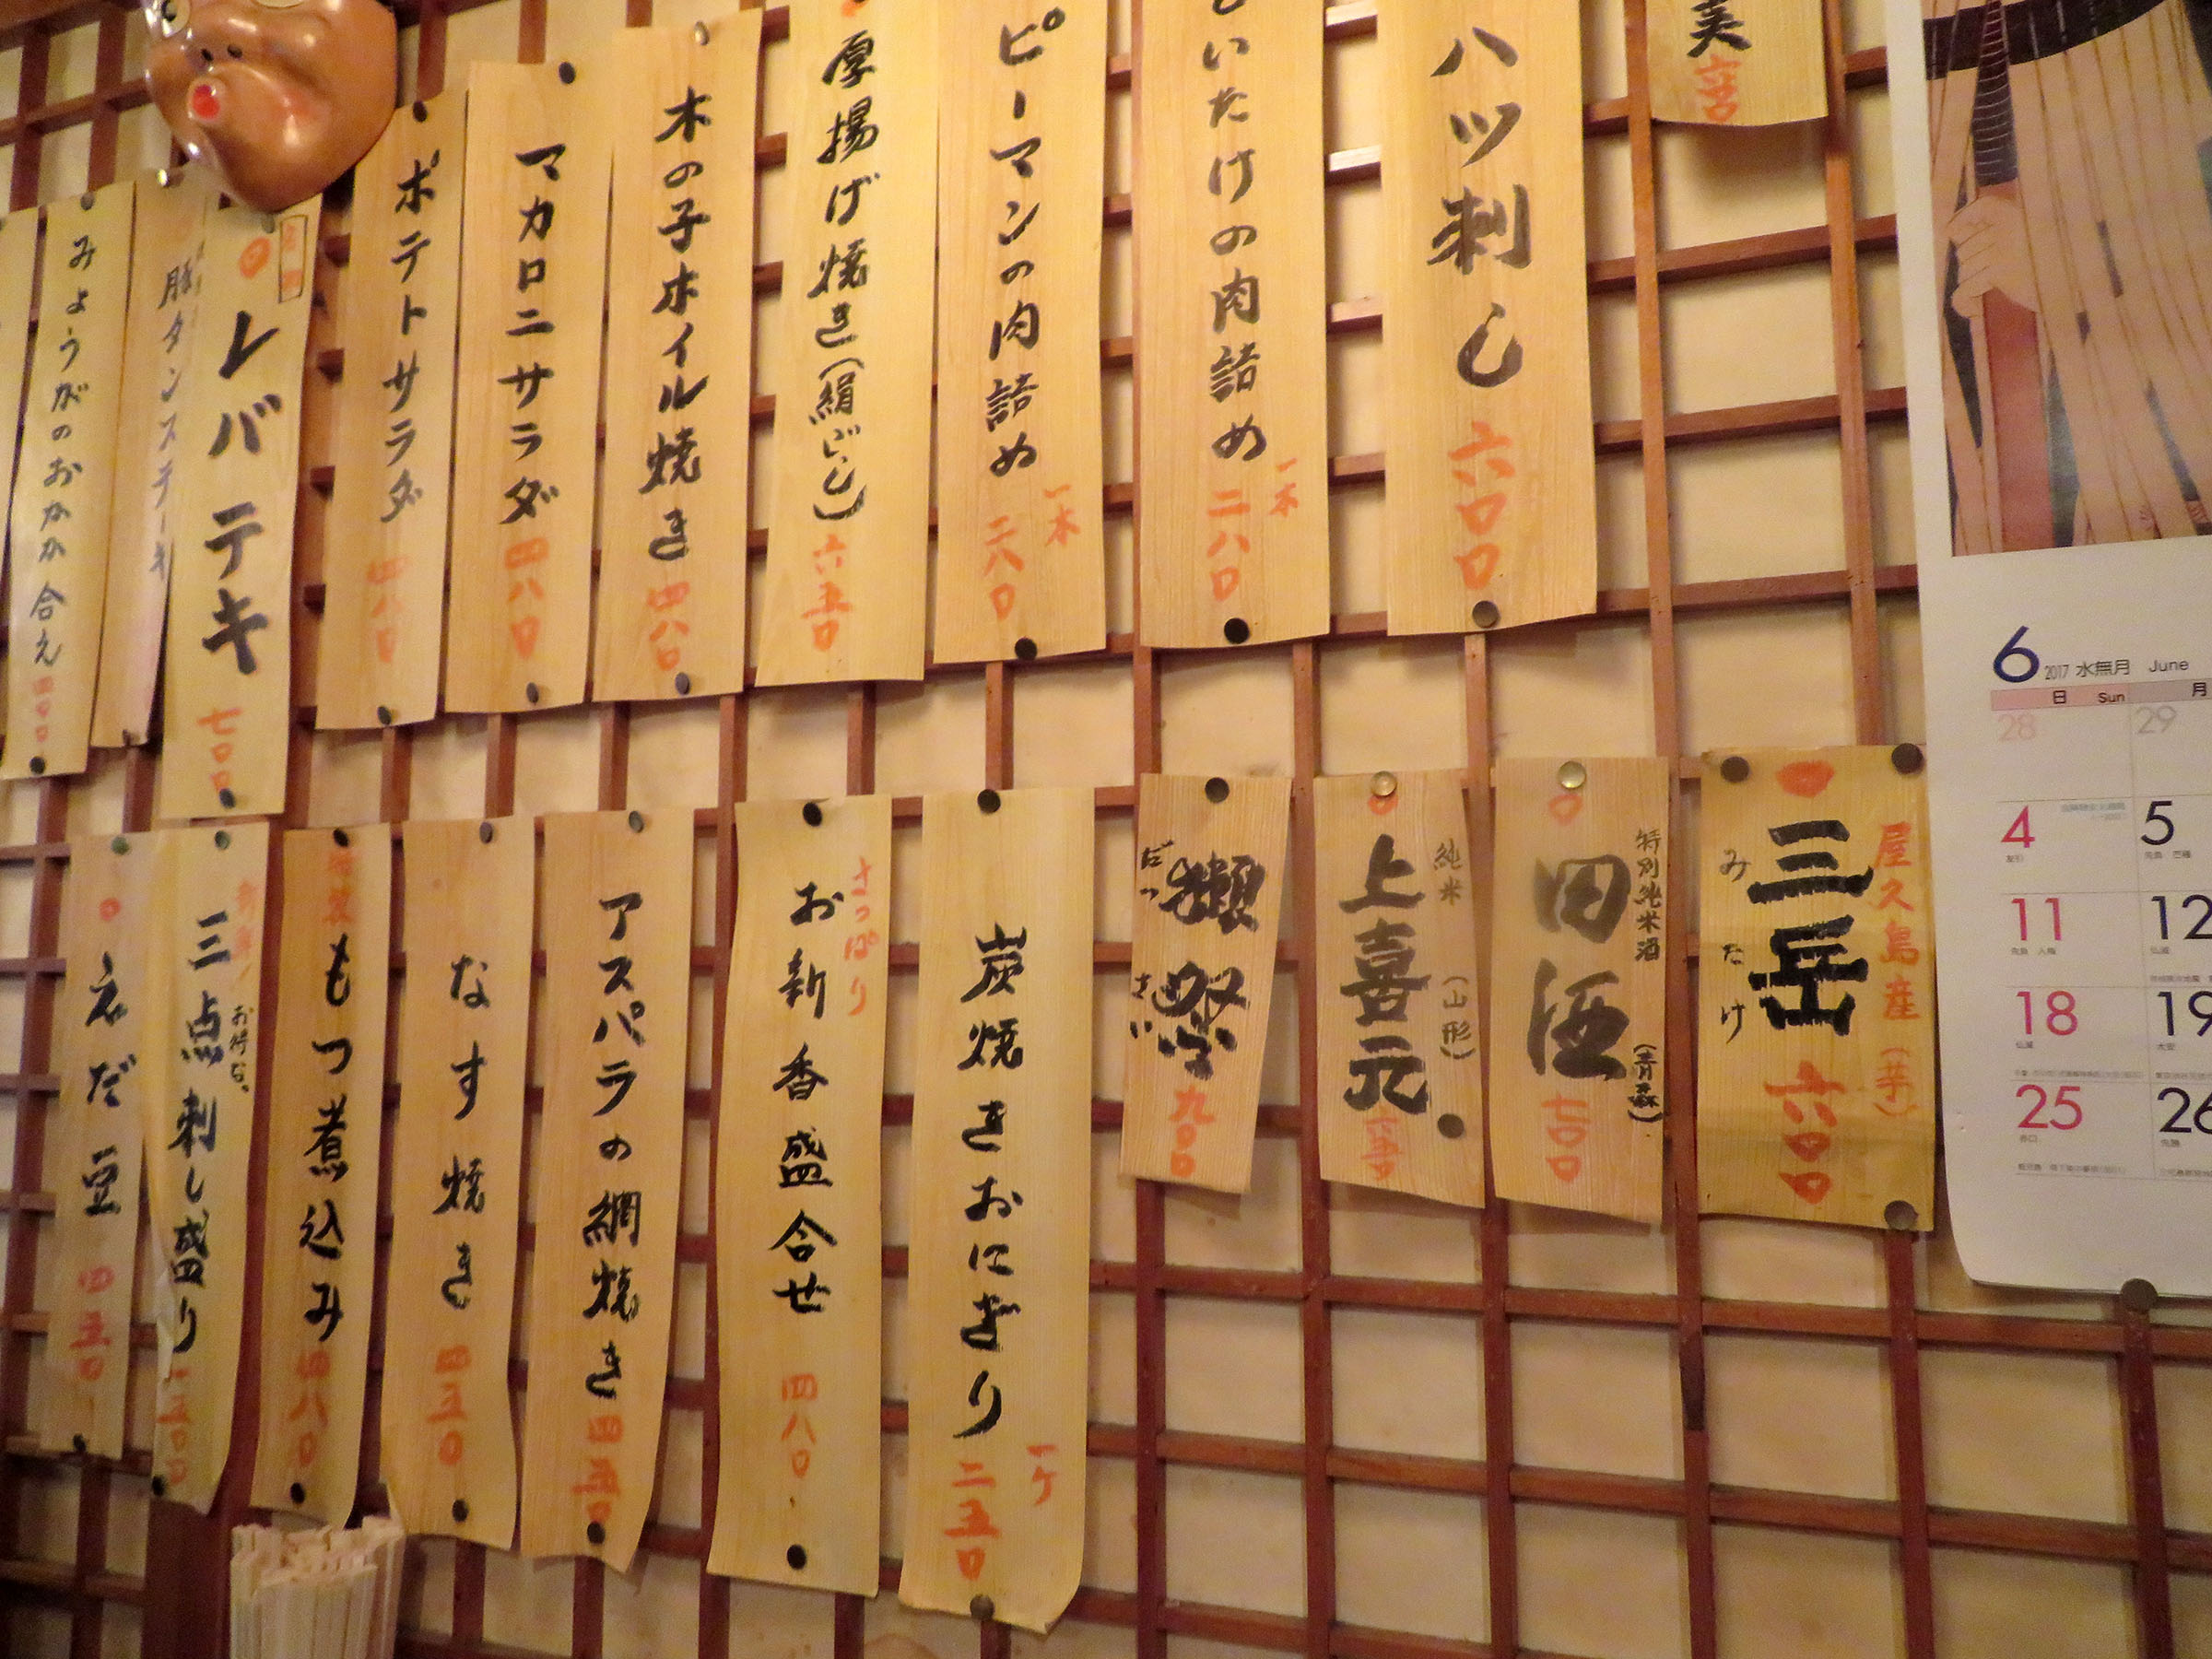 実
六〇〇
ハツ刺し
六〇〇
いたけの肉詰め
一本
二八〇
ピーマンの肉詰め
一本
二八〇
厚揚げ焼き(絹ごし)
六五〇
木の子ホイル焼き
四八〇
マカロニサラダ
四八〇
ポテトサラダ
四八〇
レバテキ
七〇〇
豚タンステーキ
みょうがのおかか合え
四〇〇
屋久島産(芋)
三岳
みたけ
六〇〇
特別純米酒(青森)
田酒
七〇〇
純米(山形)
上喜元
六五〇
獺祭
だっさい
九〇〇
炭焼きおにぎり
一ケ
二五〇
さっぱり
お新香盛合せ
四八〇
アスパラの網焼き
四五〇
なす焼き
四五〇
もつ煮込み
四八〇
お得な、
三点刺し盛り
えだ豆
四五〇
6 2017 水無月 June
日 Sun 月
28 29
4 5
11 12
18 19
25 26